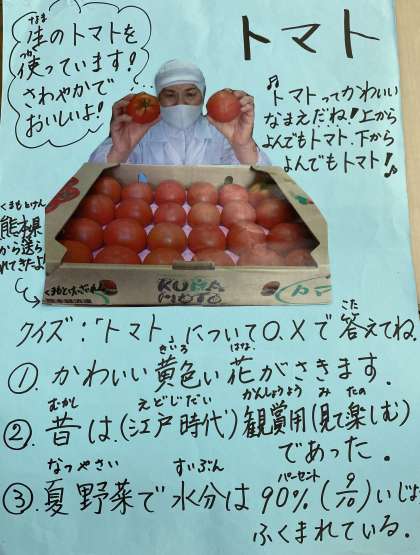 トマト
生のトマトを
使っています!
さわやかで
おいしいよ!
トマトってかわいい
なまえだね!上から
よんでもトマト、下から
よんでもトマト!
くまもとけん
熊本県
から送ら
れてきたよ!
KUMA
MOTO
クイズ:「トマト」について○.×で答えてね。
①.かわいい黄色い花がさきます.
②.昔は.(江戸時代)観賞用(見て楽しむ)
であった.
③.夏野菜で水分は90%(9/10)いじょう
ふくまれている.